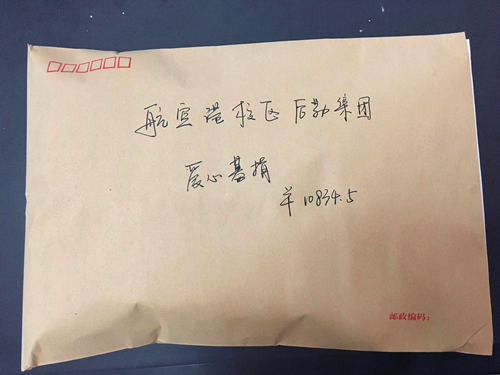 航空港校区后勤集团
爱心募捐
¥10834.5
邮政编码：